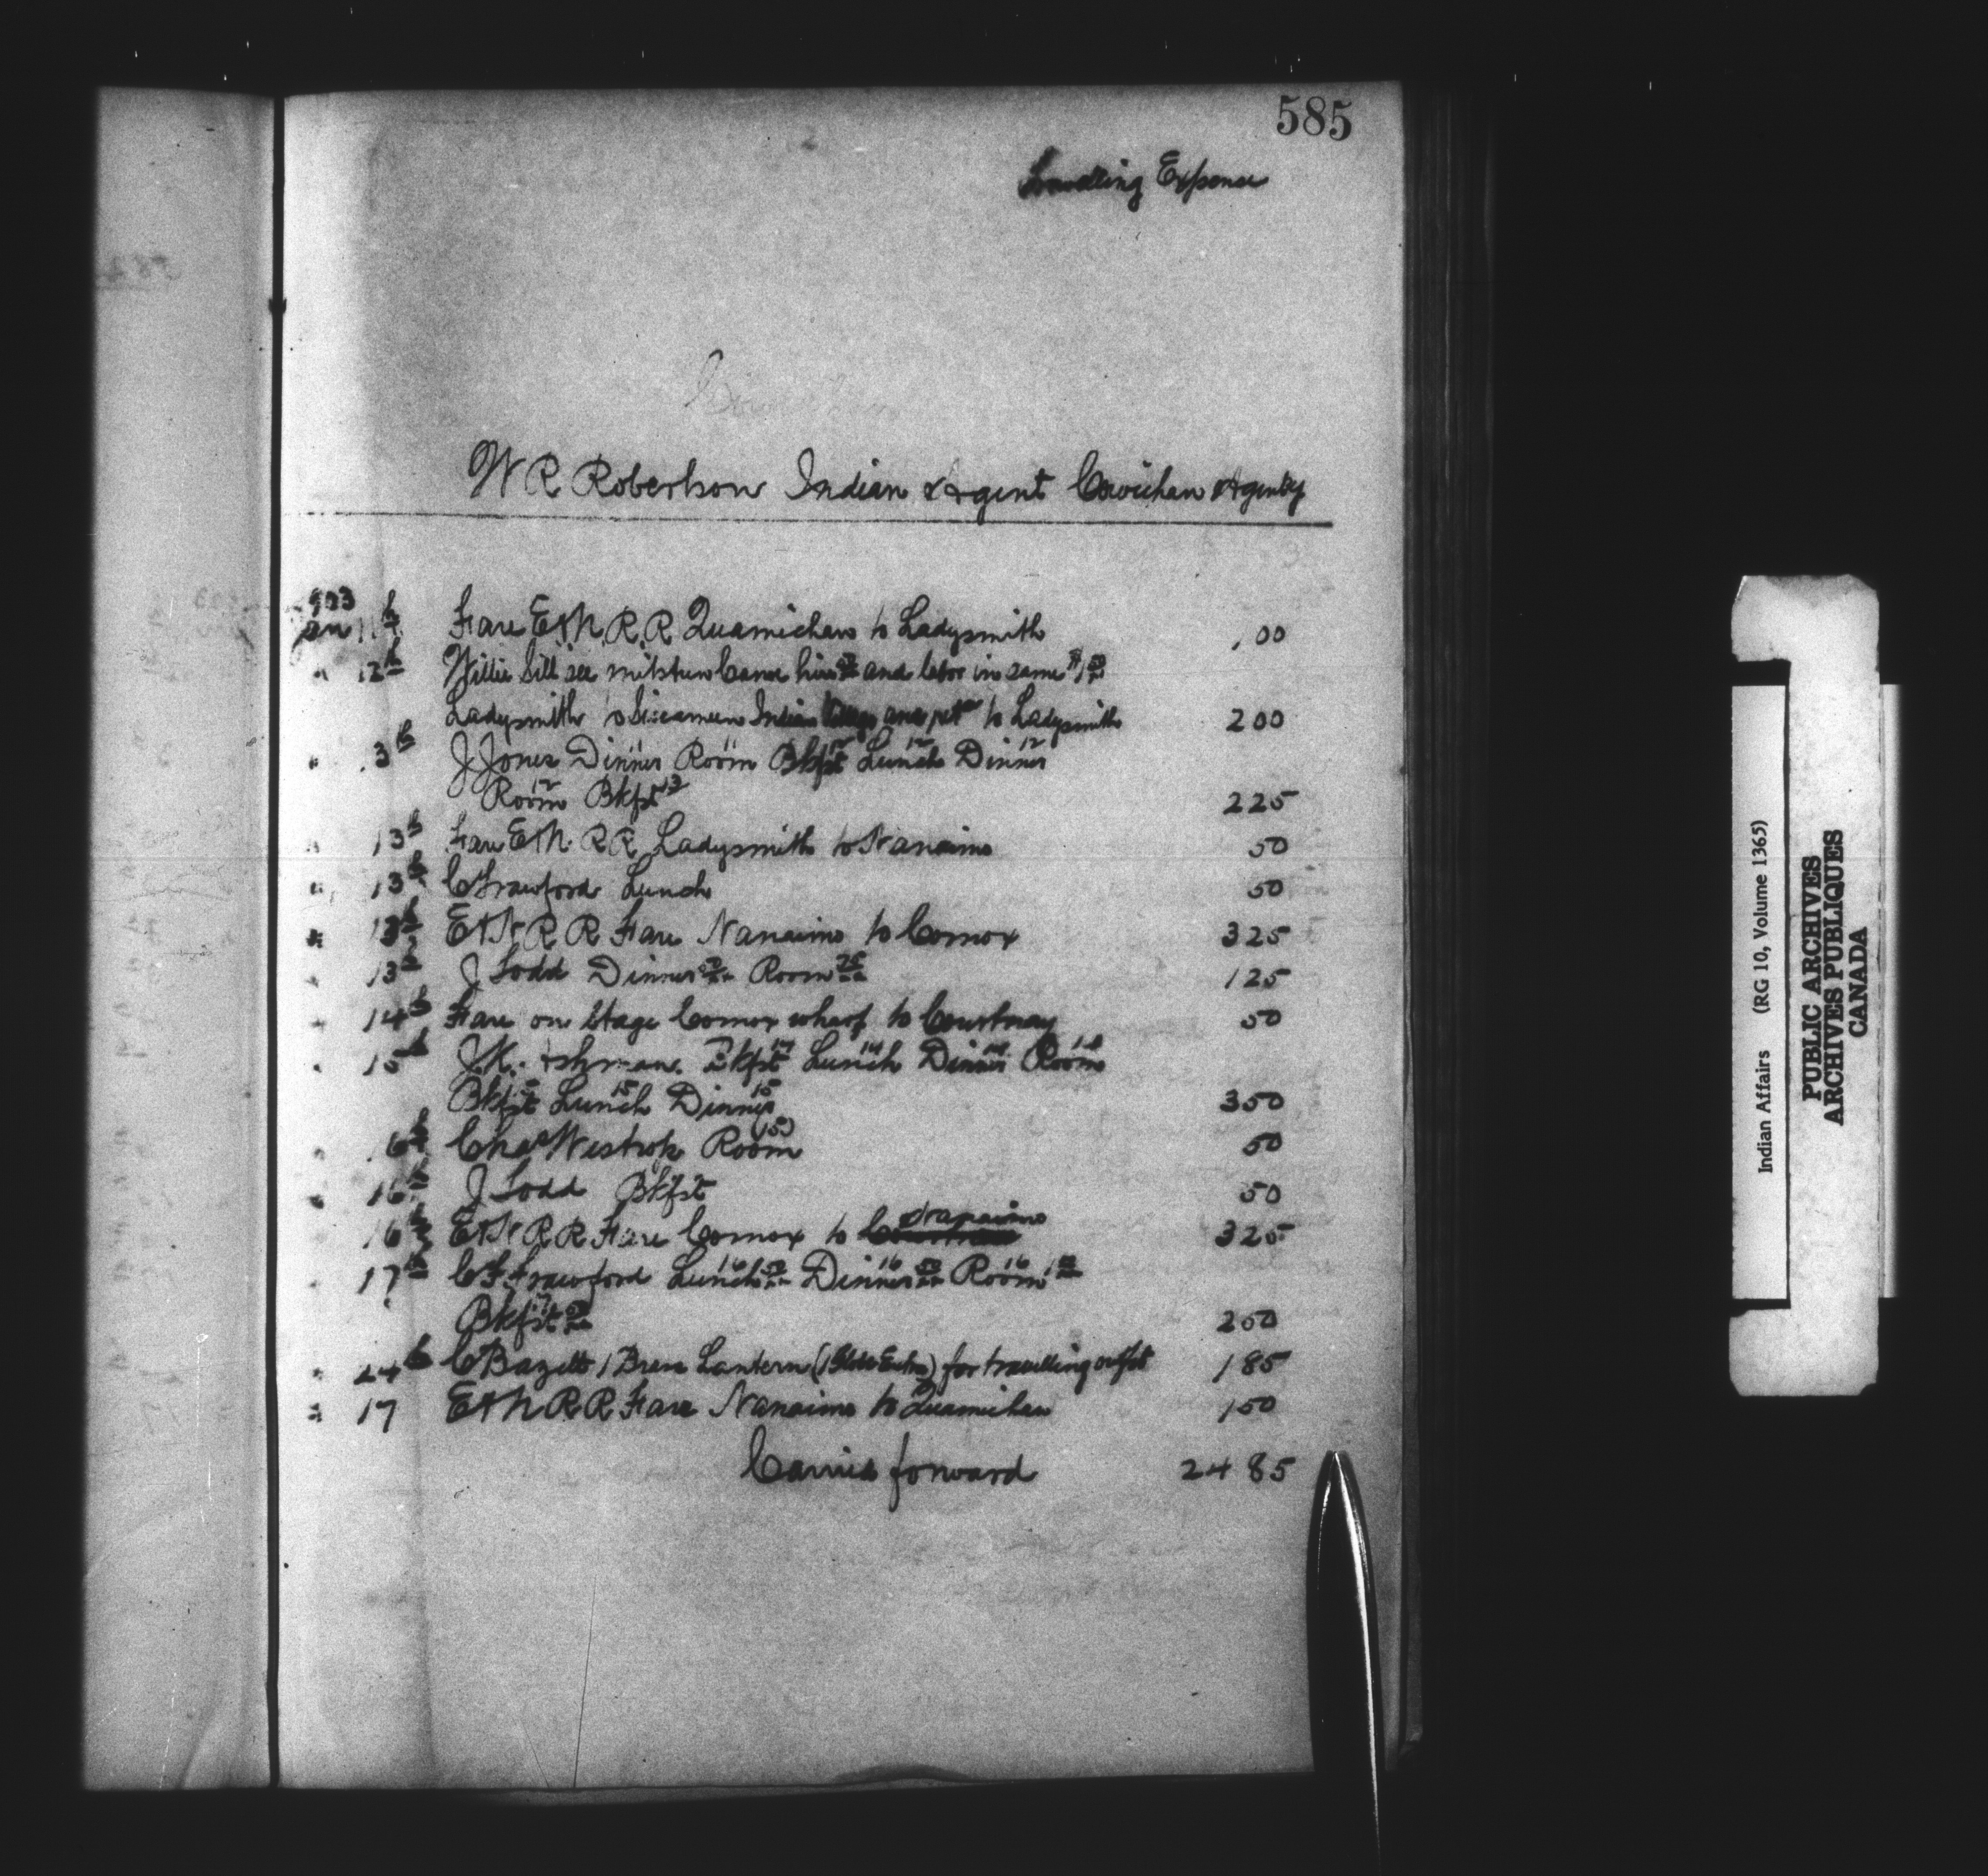 585
Travelling Expense
W R Robertson Indian Agent Cowichan Agency
903
Jan 11th Fare E & N. R. R Quamichan to Ladysmith 1 00
" 12th Willie Canoe hire 50 and labor in same $1 50
Ladysmith to Siccameen Indian Village and retn to Ladysmith 2 00
" 13th J Jones Dinner 11 Room 11 Bkfst 12 Lunch 12 Dinner 12
Room 12 Bkfst 13 2 25
" 13th Fare E & N. R R Ladysmith to Nanaimo 50
" 13th Crawford Lunch 50
" 13th E & N R R Fare Nanaimo to Comox 3 25
" 13th J Dinner 50 Room 75 1 25
" 14th Fare on Stage Comox wharf to Courtnay 50
" 15th Bkfst 14 Lunch 14 Dinner 14 Room 14
Bkfst 15 Lunch 15 Dinner 15 3 50
" 16th Chas Room (15) 50
" 16th J Bkfst 50
" 16th E & N R R Fare Comox to Nanaimo 3 25
" 17th C F Crawford Lunch 16 50 Dinner 16 50 Room 16 1 00
Bkfst 17 50 2 50
" 24th C Bazett 1 Brass Lantern (1 Globe Extra) for travelling outfit 1 85
" 17 E & N R R Fare Nanaimo to Quamichan 1 50
Carried forward 24 85
Indian Affairs (RG 10, Volume 1365)
PUBLIC ARCHIVES
ARCHIVES PUBLIQUES
CANADA